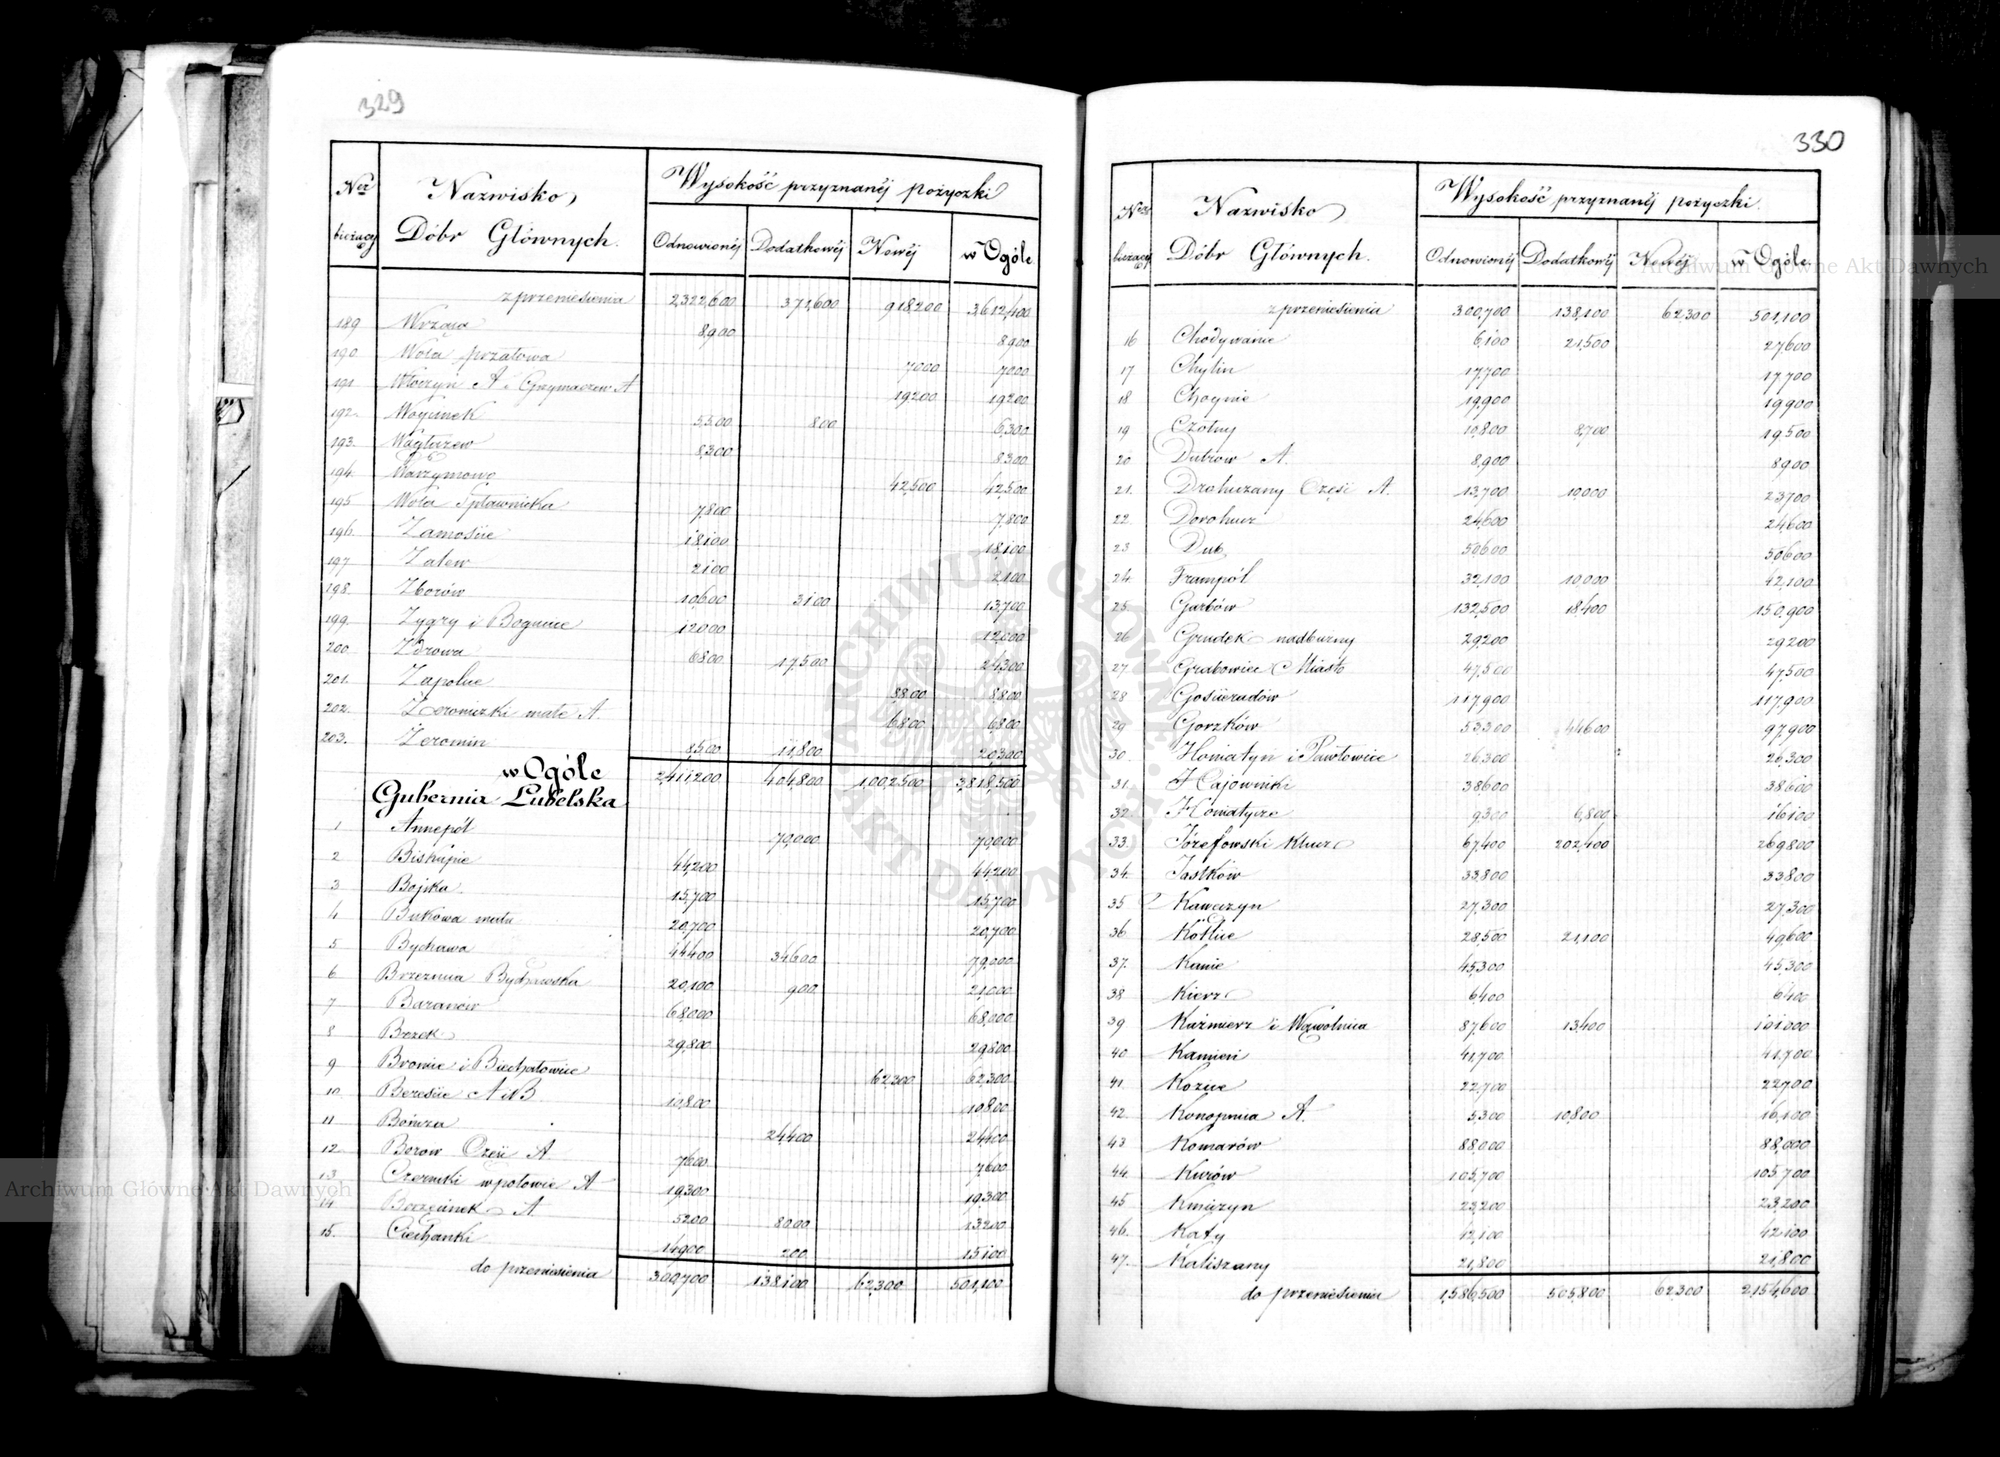 329
Ner bieżący | Nazwisko Dóbr Głównych. | Wysokość przyznanéj pożyczki
Odnowionéj | Dodatkowéj | Nowéj | w Ogóle
z przeniesienia 2,322,600 371,600 918,200 3,612,400
189 Wrząca 8,900 8900
190. Wola przatowa 7000 7000
191 Włoczyń A i Grzymaczew A 19200 19200
192. Woycinek 5,500 800 6,300
193. Wągłczew 8,300 8300
194. Warzymowo 42,500 42,500
195 Wola Spławnicka 7,800 7,800
196. Zamoście 18,100 18,100
197 Zalew 2100 2100
198. Zborów 10,600 3100 13,700
199. Zygry i Bogucice 12000 12,000
200. Zdrowa 6800 17,500 24,300
201. Zapolice 8,800 8,800
202. Żeroniczki małe A. 6800 6,800
203. Żeromin 8,500 11,800 20,300
w Ogóle 2,411,200 404,800 1,002,500 3,818,500
Gubernia Lubelska
1 Annopól 79,000 79,000
2 Biskupie 44,200 44,200
3 Bojska 15,700 15,700
4 Bukowa mała 20,700 20,700
5 Bychawa 44400 34600 79,000
6 Brzeznica Bychawska 20,100 900 21,000
7 Baranów 68,000 68,000
8 Brzek 29,800 29,800
9 Bronice i Biechatowice 62300 62,300
10. Bereście A i B 10,800 10800
11 Bończa 24400 24,400
12. Borow Część A 7600 7,600
13 Czerniki w połowie A 19300 19,300
14 Brzezinek A 5200 8000 13200
15. Ciechanki 14900 200 15100
do przeniesienia 300,700 138,100 62,300 501,100
330
Ner bieżący | Nazwisko Dóbr Głównych. | Wysokość przyznanéj pożyczki.
Odnowionéj | Dodatkowéj | Nowéj | w Ogóle
z przeniesienia 300,700 138,100 62300 501,100
16 Chodywanie 6,100 21,500 27,600
17 Chylin 17,700 17,700
18 Choynie 19,900 19900
19 Czółny 10,800 8,700 19500
20 Dubrow A. 8,900 8900
21. Drohiczany Część A. 13,700 10,000 23700
22. Dorohucz 24,600 24,600
23 Dub 50,600 50,600
24 Frampól 32,100 10,000 42,100
25. Garbów 132,500 18,400 150,900
26 Grudek nadbużny 29,200 29,200
27. Grabowiec Miasto 47,500 47,500
28 Gościeradów 117,900 117,900
29 Gorzków 53300 44600 97,900
30. Honiatyn i Pawłowice 26,300 26,300
31. Hajowniki 38600 38600
32. Honiatycze 9300 6,800 16100
33. Józefowski Klucz 67,400 202,400 269,800
34. Jastków 33,800 33800
35 Kawczyn 27,300 27,300
36. Kotlice 28,500 21,100 49,600
37. Kanie 45,300 45,300
38 Kierz 6400 6400
39 Kaźmierz i Wąwolnica 87,600 13,400 101,000
40 Kamień 41,700 41,700
41. Kozice 22,700 22,700
42. Konopnica A. 5,300 10,800 16,100
43 Komarów 88,000 88,000
44. Kurów 105,700 105,700
45 Kmiczyn 23,200 23,200
46. Kąty 42,100 42,100
47. Kaliszany 21,800 21,800
do przeniesienia 1,586,500 505,800 62,300 2,154,600
ARCHIWUM GŁÓWNE AKT DAWNYCH
Archiwum Główne Akt Dawnych
Archiwum Główne Akt Dawnych